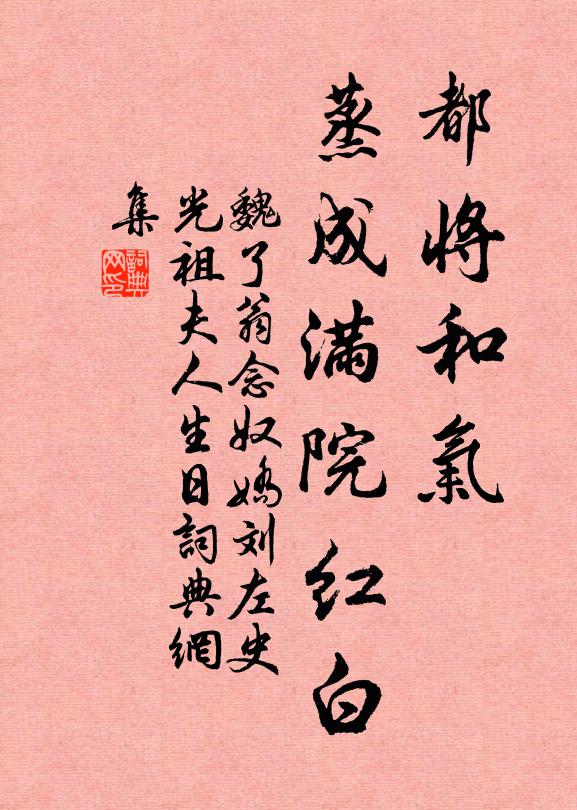 都將和氣
蒸成滿院紅白
魏了翁念奴嬌刘左史
光祖夫人生日詞典網
集
詞典網印